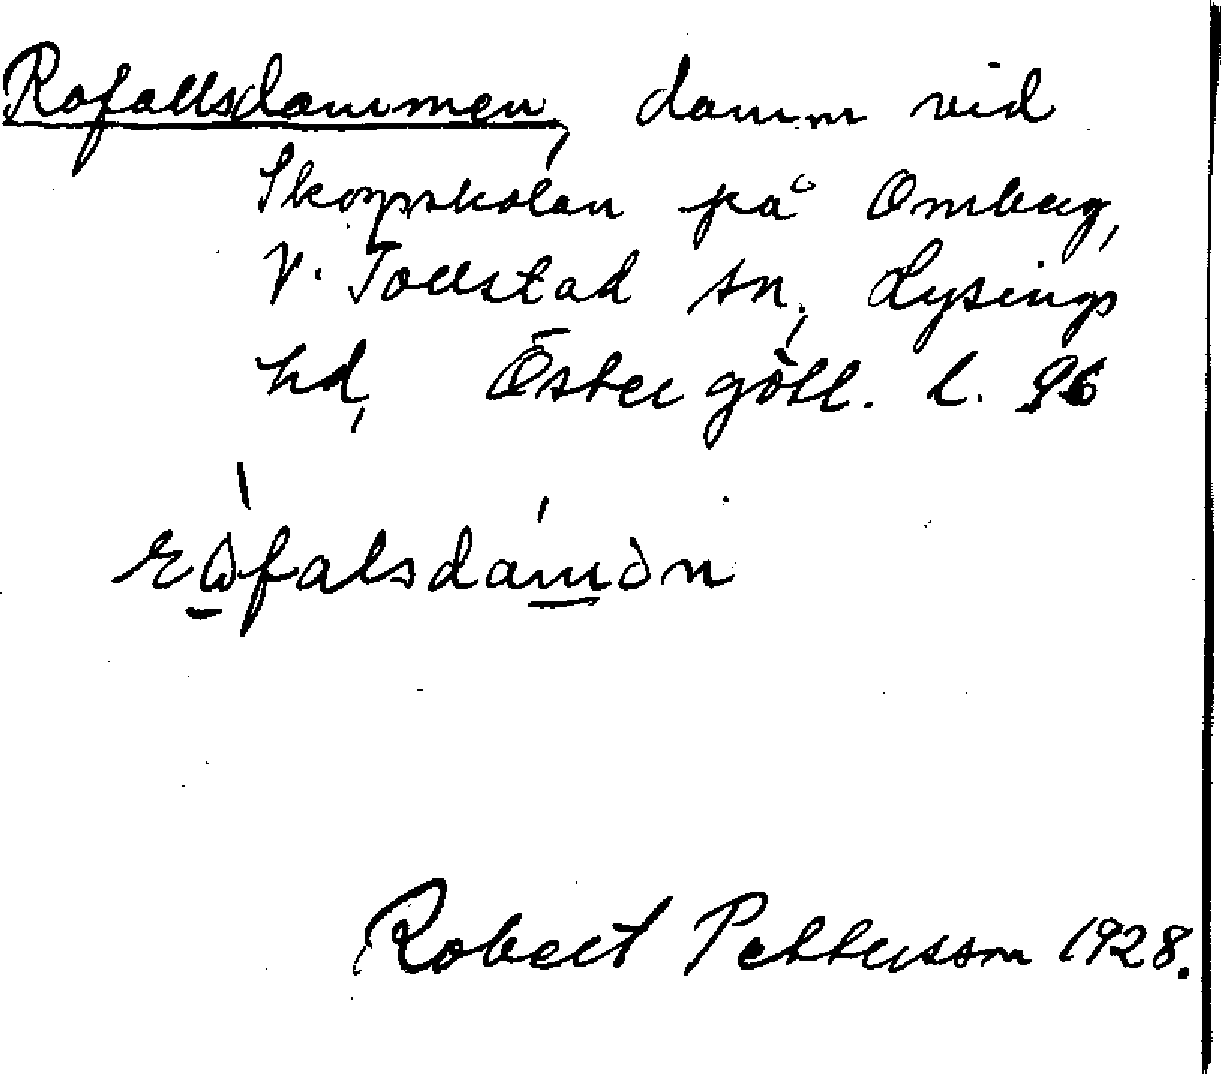 Rofallsdammen, damm vid
Skogsskolan på Omberg,
V. Tollstad sn, Lysings
hd, Östergötl. l. 96
Robert Pettersson 1928.